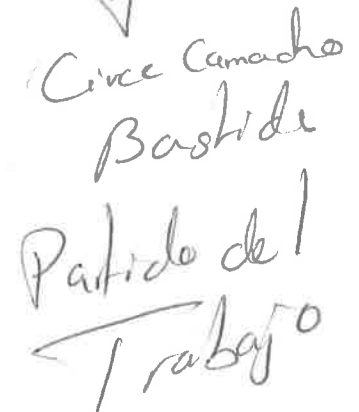 Circe Camacho
Bastida
Partido del
Trabajo